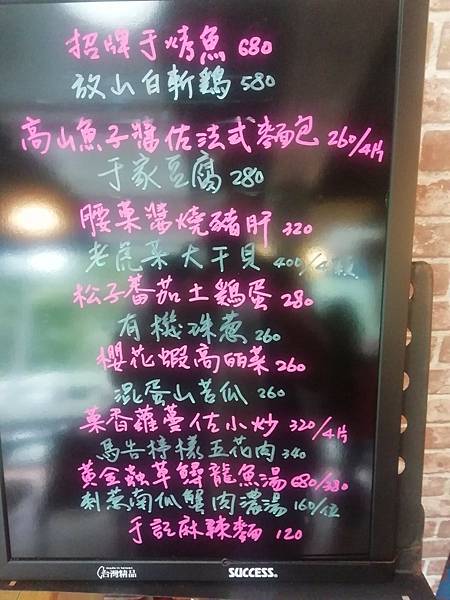 招牌于烤魚 680
放山白斬鷄 580
高山魚子醬佐法式麵包 260/4片
于家豆腐 280
腰菓醬燒豬肝 320
老虎菜大干貝 400/4顆
松子蕃茄土鷄蛋 280
有機珠蔥 260
櫻花蝦高麗菜 260
混蛋山苦瓜 260
菓香蘿蔔佐小炒 320/4片
馬告檸檬五花肉 340
黃金蟲草鱘龍魚湯 680/380
刺蔥南瓜蟹肉濃湯 160/位
于記麻辣麵 120
台灣精品 SUCCESS